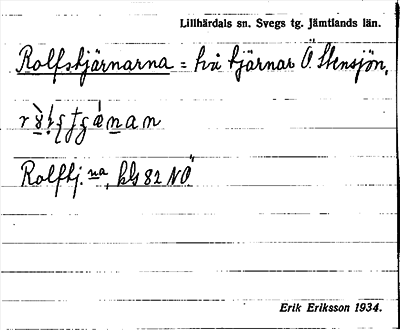 Lillhärdals sn. Svegs tg. Jämtlands län.
Rolfstjärnarna = två tjärnar Ö. Stensjön,
Rolftj. na, kbl 82 NÖ
Erik Eriksson 1934.